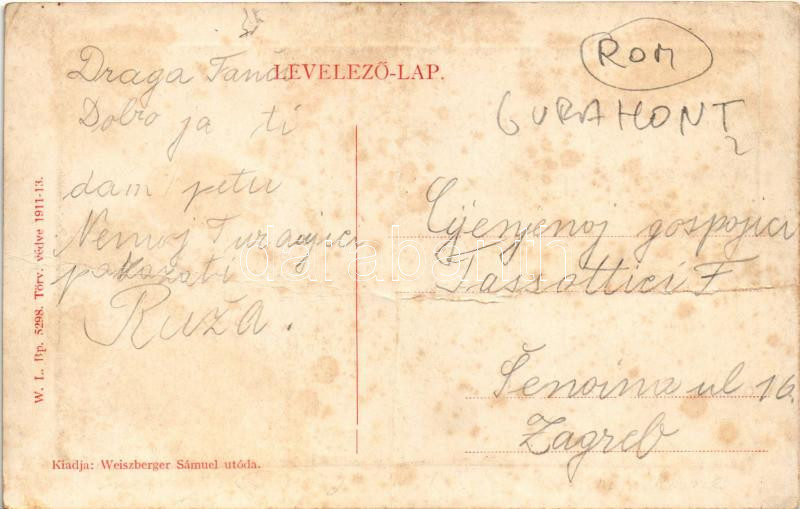 LEVELEZŐ-LAP.
Draga
Dobro ja ti
dam petu
Nemoj
pokazati
Ruža.
ROM
GURAHONT
Cijenjenoj gospojici
Tassottici F
Šenoina ul 16.
Zagreb
W. L. Bp. 5298. Törv. védve 1911-13.
Kiadja: Weiszberger Sámuel utóda.
darabanth